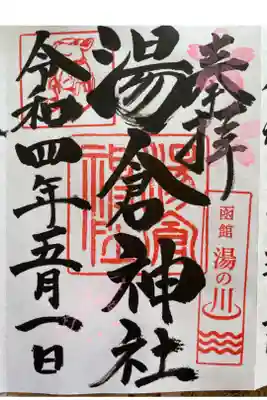 奉拝
湯倉神社
令和四年五月一日
函館
湯の川
湯倉神社